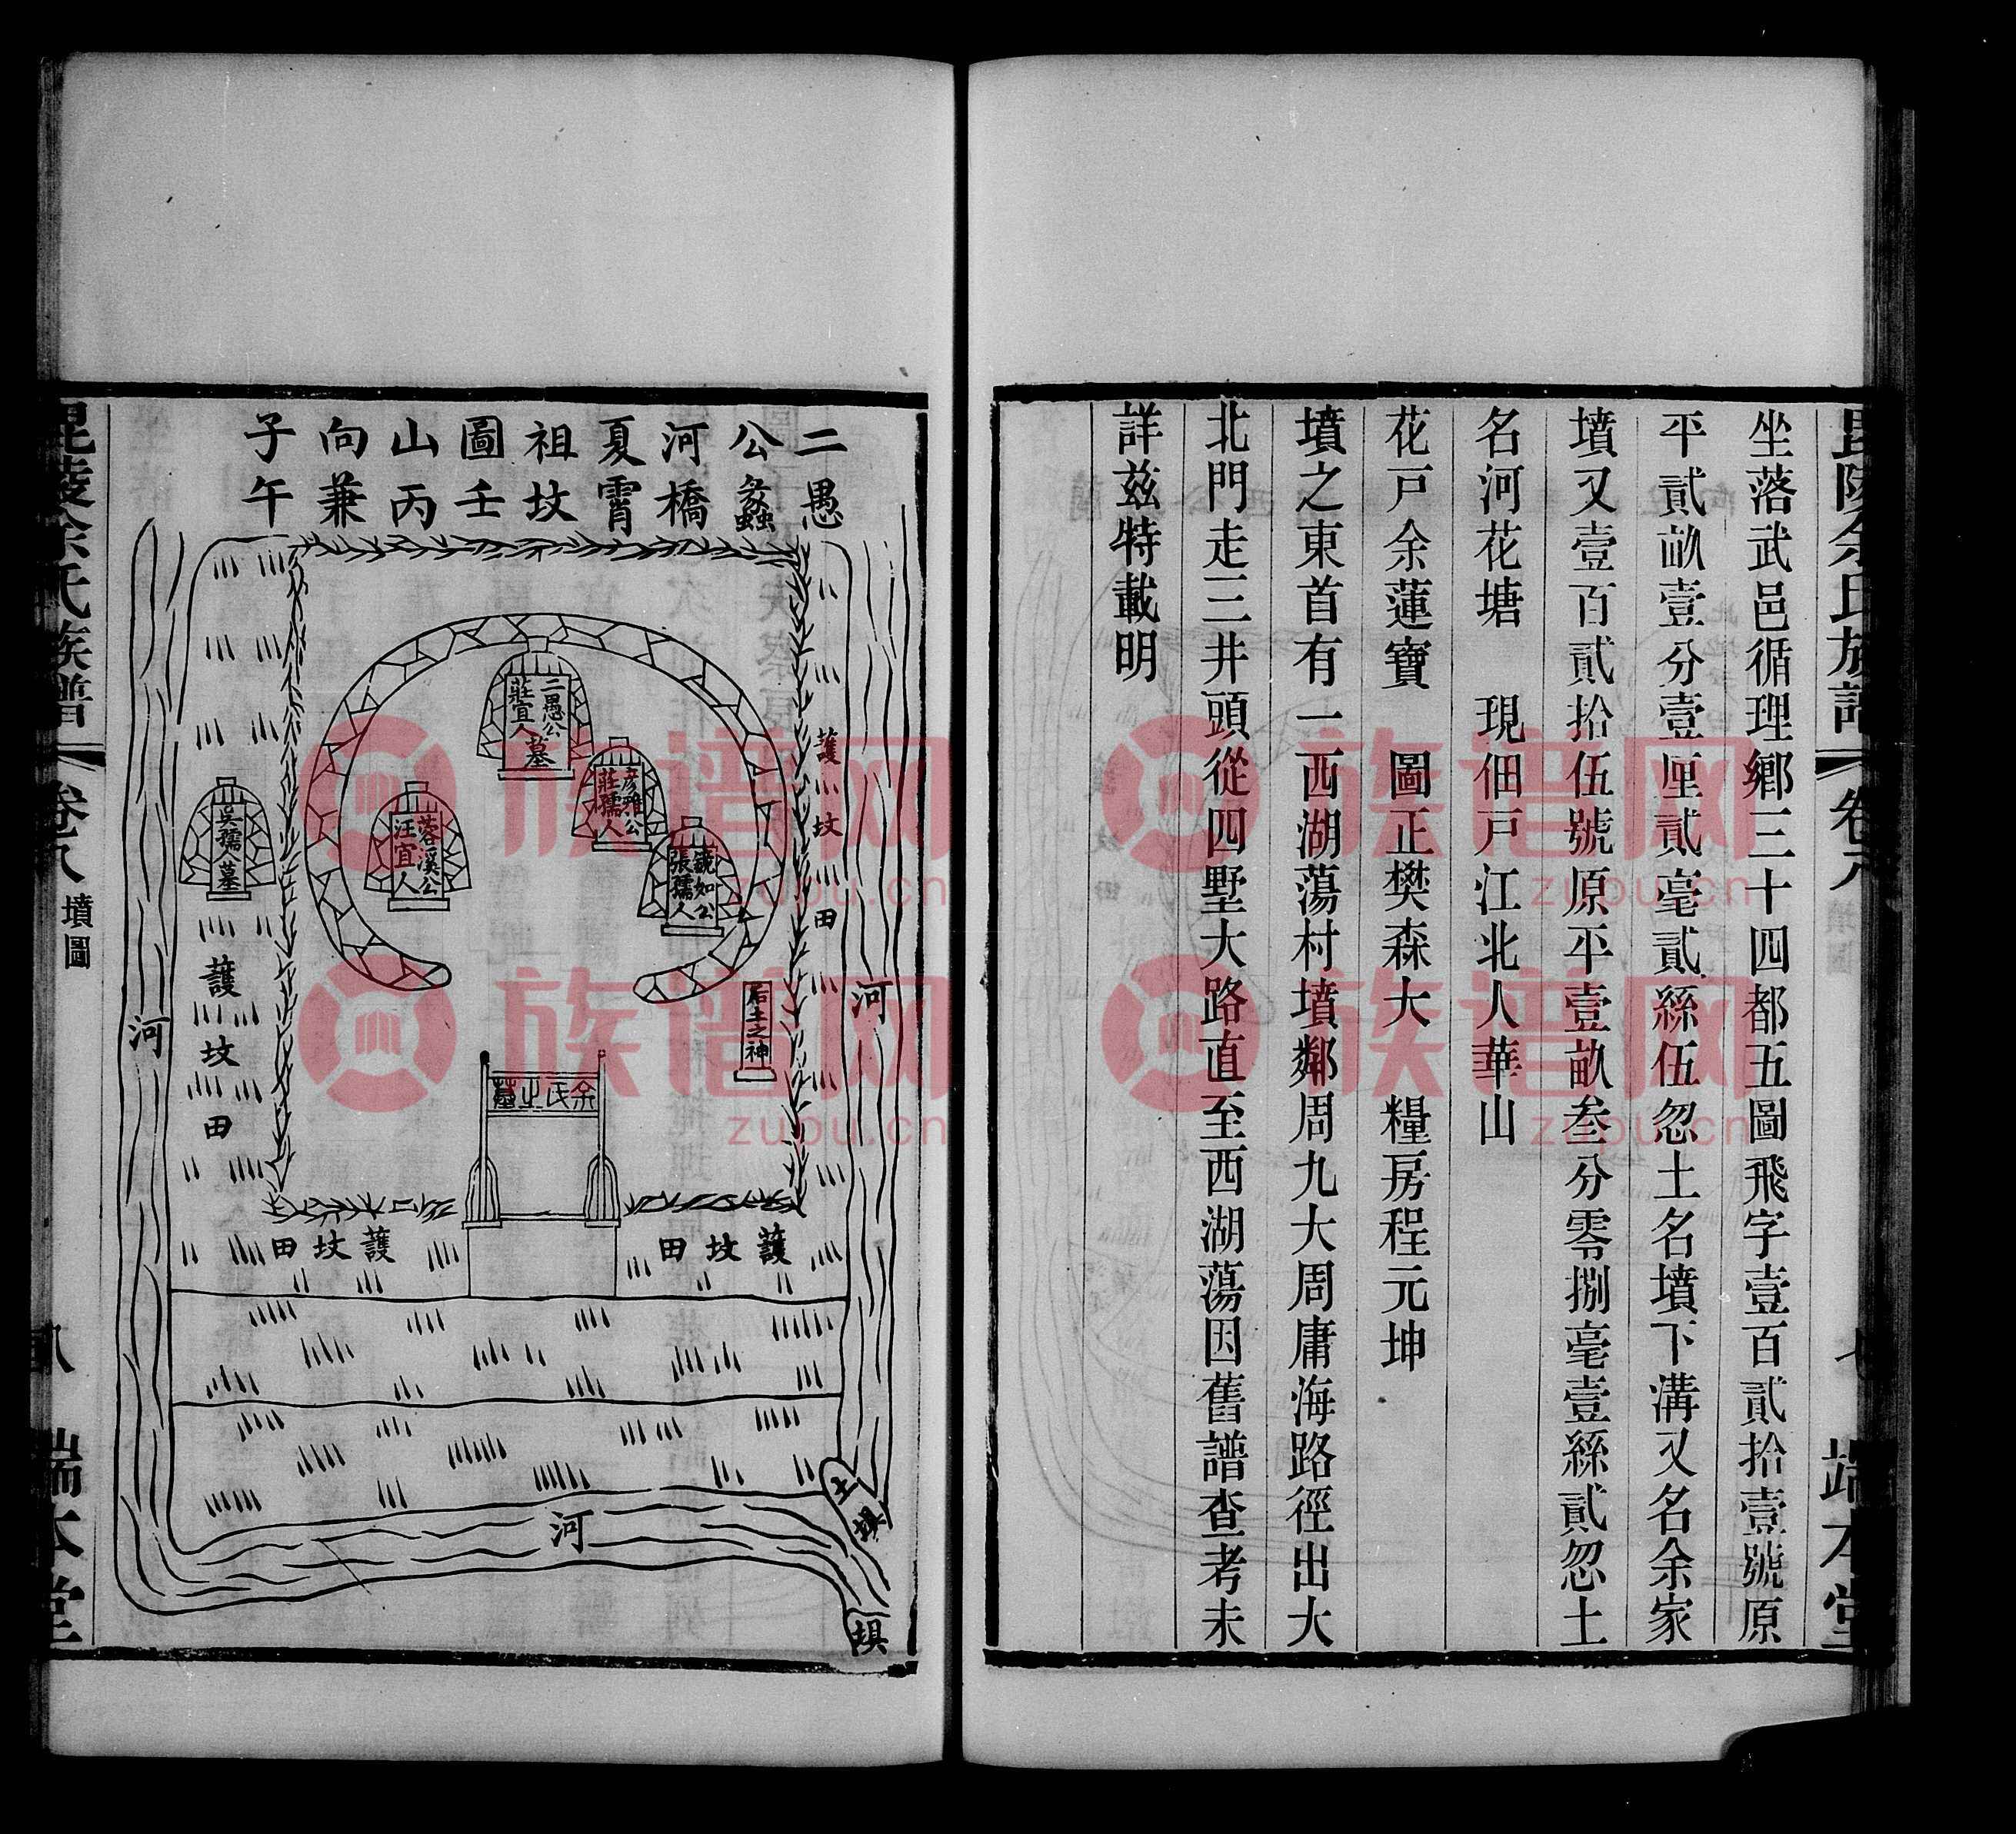 毘陵余氏族譜 卷八 七 端本堂
坐落武邑循理鄉三十四都五圖飛字壹百貳拾壹號原
平貳畝壹分壹厘貳毫貳絲伍忽土名墳下溝又名余家
墳又壹百貳拾伍號原平壹畝叁分零捌毫壹絲貳忽土
名河花塘 現佃戸江北人華山
花戸余蓮寶 圖正樊森大 糧房程元坤
墳之東首有一西湖蕩村墳鄰周九大周庸海路徑出大
北門走三井頭從四墅大路直至西湖蕩因舊譜查考未
詳玆特載明
二愚
公蠡
河橋
夏霄
祖坟
圖壬
山丙
向兼
子午
二愚公
莊宜人
墓
彥雅公
莊孺人
張孺人
蓉溪公
汪宜人
吳孺人墓
后土之神
余氏之墓
護坟田
護坟田
護坟田
護坟田
河
河
河
土壩
壩
毘陵余氏族譜 卷八 墳圖 八 端本堂
族谱网
zupu.cn
族谱网
zupu.cn
族谱网
zupu.cn
族谱网
zupu.cn